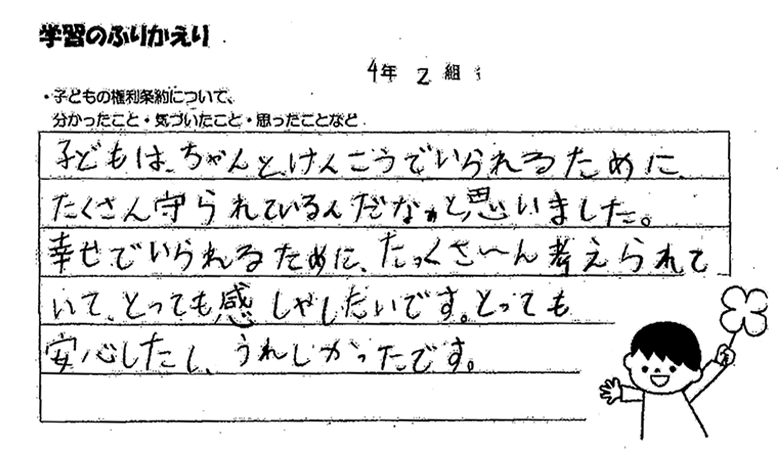 学習のふりかえり
4年 2 組
・子どもの権利条約について、
分かったこと・気づいたこと・思ったことなど
子どもは、ちゃんと、けんこうでいられるために、
たくさん守られているんだなぁと、思いました。
幸せでいられるために、たっくさ〜ん考えられて
いて、とっても感しゃしたいです。とっても
安心したし、うれしかったです。